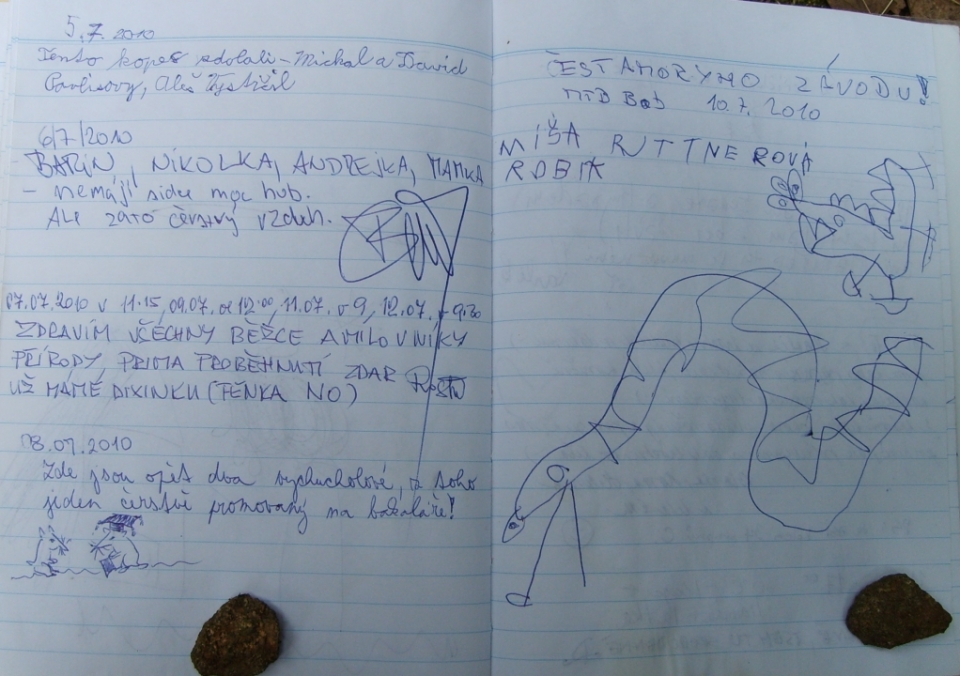 5.7. 2010
Tento kopec zdolali - Michal a David
Pavlisovy, Aleš
6/7/2010
BARIN, NIKOLKA, ANDREJKA, MAMKA
- nemají sice moc hub.
Ale zato čerstvý vzduch.
07.07.2010 v 11.15, 09.07. od 12:00, 11.07. v 9, 12.07. v 9.30
ZDRAVÍM VŠECHNY BĚŽCE A MILOVNÍKY
PŘÍRODY, PRIMA PROBĚHNUTÍ ZDAR
UŽ MÁME DIXINKU (FĚNKA NO)
08.07.2010
Zde jsou opět dva vychucholové, z toho
jeden čerstvě promovaný na bakaláře!
ZÁVODU!
MTB 10.7. 2010
MÍŠA RUTTNEROVÁ
ROBIK